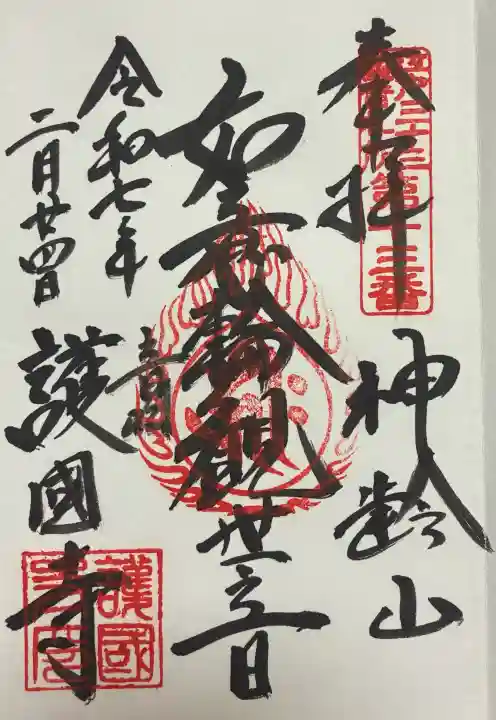 奉拝
第十三番
神齢山
如意輪観世音
令和七年
二月廿四日
音羽
護國寺
護國